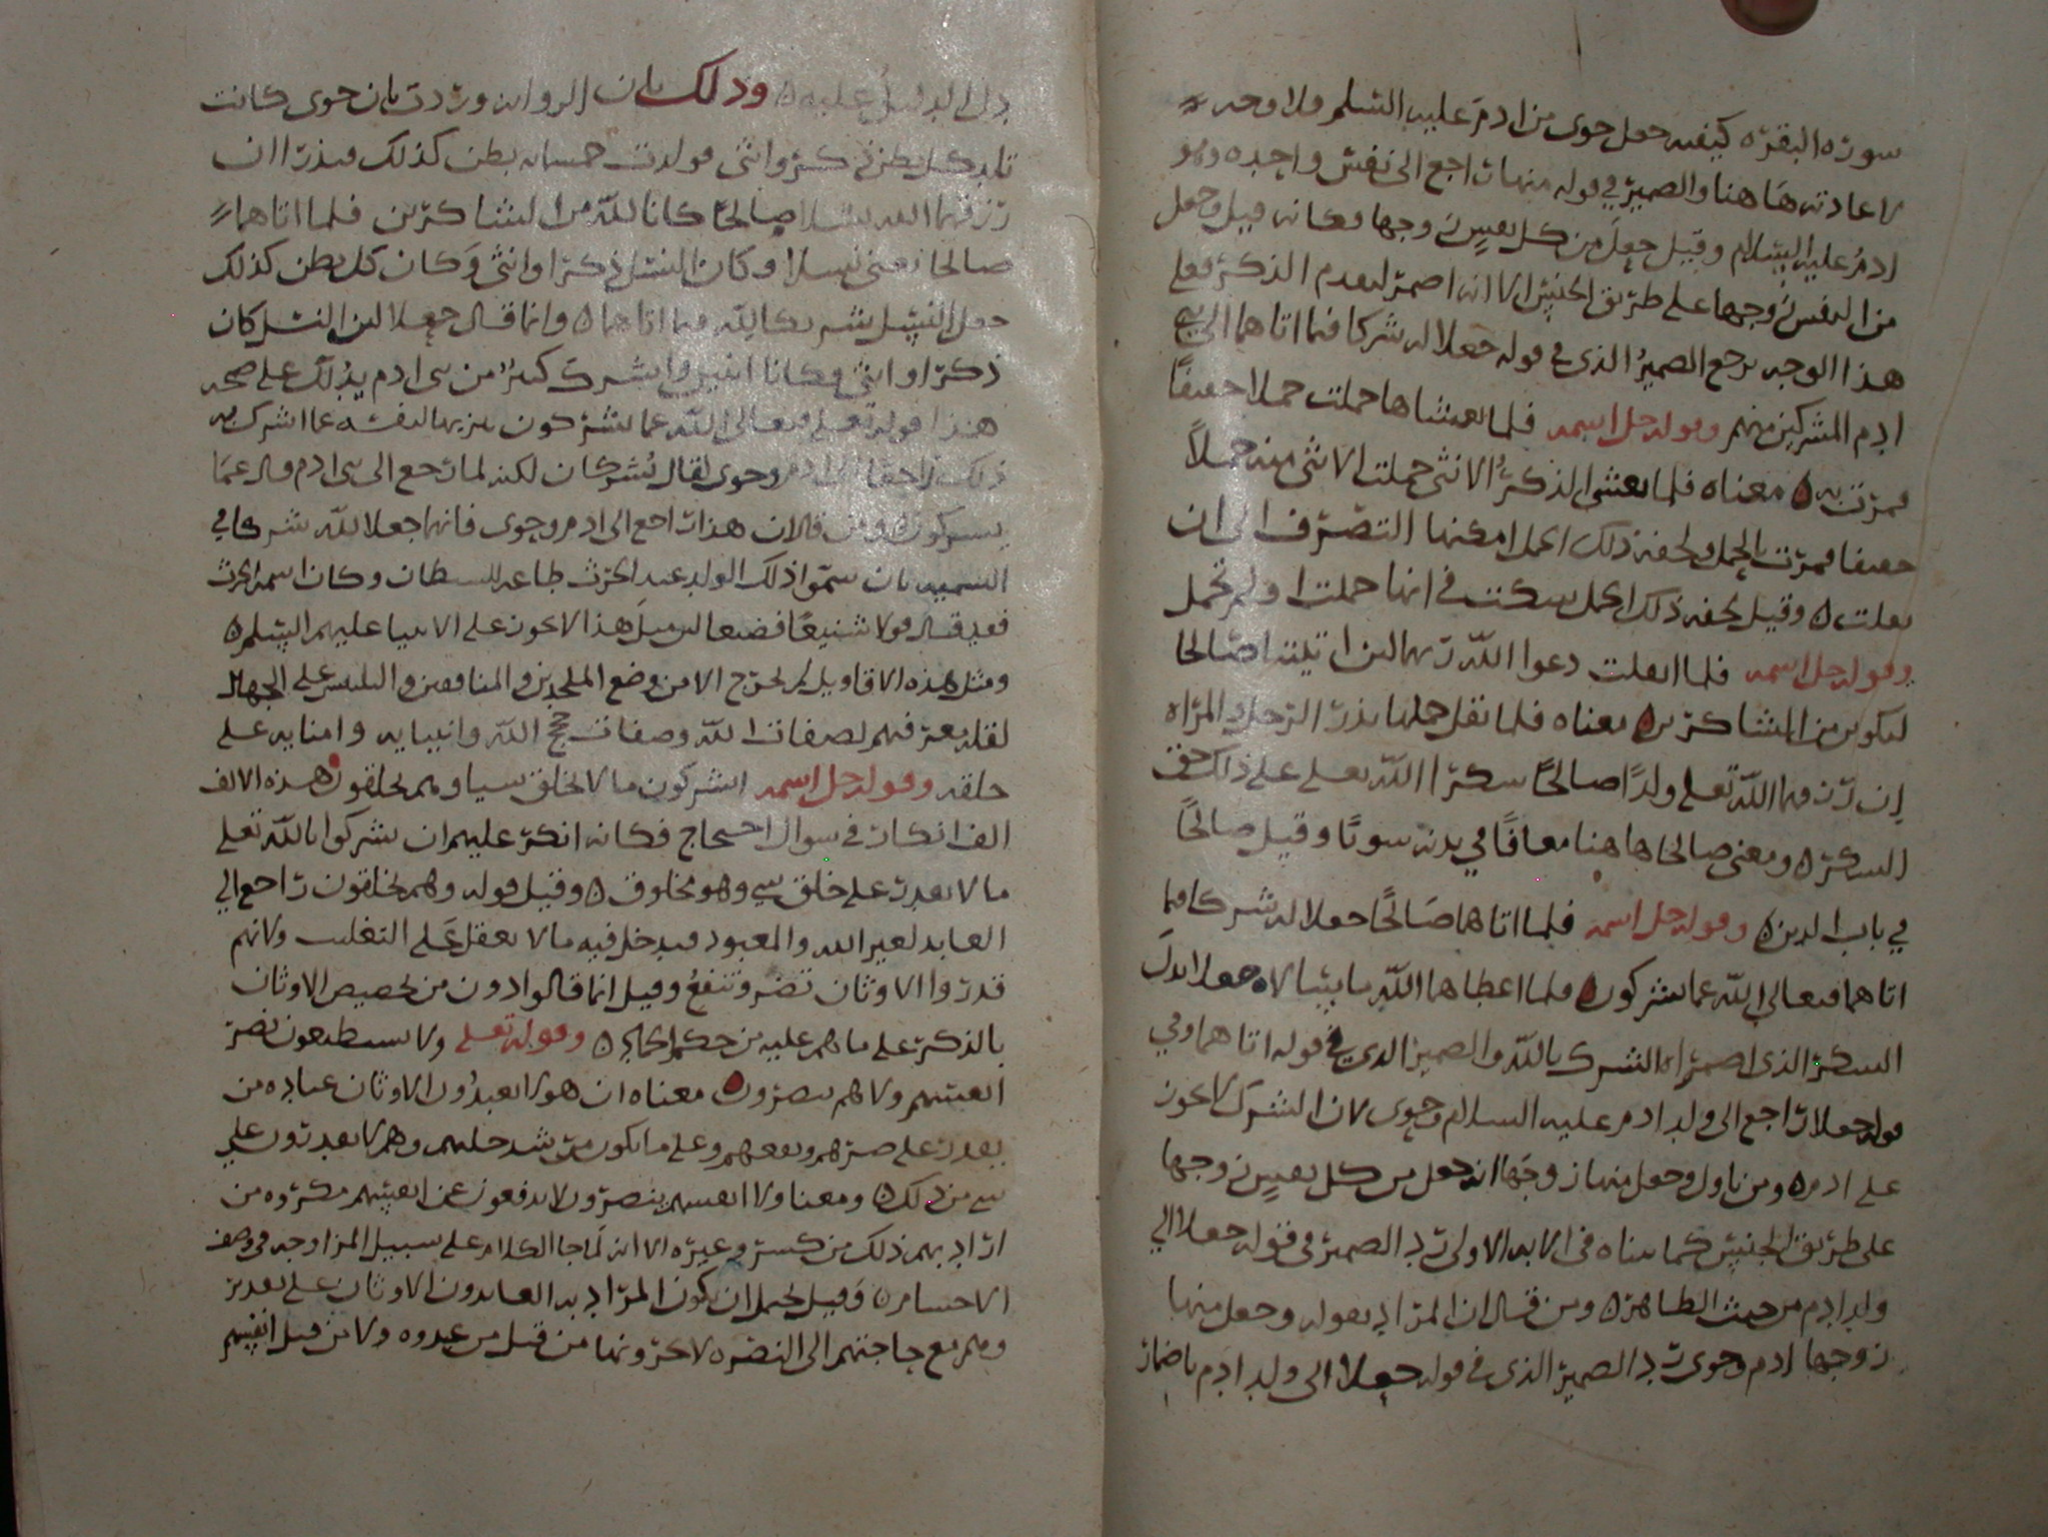 سورة البقرة كيفية جعل حوى من ادم عليه السلم فلا وجه
لاعادته هاهنا والضمير في قوله منها راجع الى نفس واحدة وهو
ادم عليه السلام وقيل جعل من كل نفس زوجها فكانه قيل وجعل
من النفس زوجها على طريق الجنس الا انه اضمر لتقدم الذكر فعلى
هذا الوجه يرجع الضمير الذي في قوله جعلا له شركا فيما اتاهما الى بني
ادم المشركين منهم وقوله جل اسمه فلما تغشاها حملت حملا خفيفا
فمرت به معناه فلما تغشى الذكر الانثى حملت الانثى منه حملا
خفيفا فمرت بالحمل ولخفة ذلك الحمل امكنها التصرف الى ان
ثقلت وقيل لخفة ذلك الحمل شكت في انها حملت او لم تحمل
وقوله جل اسمه فلما اثقلت دعوا الله ربهما لئن اتيتنا صالحا
لنكونن من الشاكرين معناه فلما ثقل حملها نذر الرجل والمراة
ان رزقهما الله تعلى ولدا صالحا شكرا الله تعلى على ذلك حق
الشكر ومعنى صالحا هاهنا معافا في بدنه سويا وقيل صالحا
في باب الدين وقوله جل اسمه فلما اتاهما صالحا جعلا له شركا فيما
اتاهما فتعالى الله عما يشركون فلما اعطاهما الله ما سالاه جعلا بدل
الشكر الذي اضمراه الشرك بالله والضمير الذي في قوله اتاهما وفي
قوله جعلا راجع الى ولد ادم عليه السلام وحوى لان الشرك لا يجوز
على ادم ومن تاول وجعل منها زوجها انه جعل من كل نفس زوجها
على طريق الجنس كما بيناه في الاية الاولى رد الضمير في قوله جعلا الى
ولد ادم من حيث الظاهر ومن قال ان المراد بقوله وجعل منها
زوجها ادم وحوى رد الضمير الذي في قوله جعلا الى ولد ادم باضمار
عليه وذلك بان الرواية وردت بان حوى كانت
تلد كل بطن ذكر وانثى فولدت خمسماية بطن كذلك فنذرا ان
رزقهما الله نسلا صالحا كانا لله من الشاكرين فلما اتاهما
صالحا يعنى نسلا وكان النسل ذكرا وانثى وكان كل بطن كذلك
جعل النسل شريكا لله فيما اتاهما وانما قال جعلا لان النسل كان
ذكرا وانثى فكانا اثنين واشرك كثير من بني ادم يدلك على صحة
هذا قوله تعلى فتعالى الله عما يشركون تنزيها لنفسه عما اشرك به
ذلك راجعا الى ادم وحوى لقال يشركان لكنه لما رجع الى بني ادم قال عما
يشركون ومن قال ان هذا راجع الى ادم وحوى فانهما جعلا لله شركا في
التسمية بان سموا ذلك الولد عبد الحرث طاعة للشيطان وكان اسمه الحرث
فقد قال قولا شنيعا فضيعا لان مثل هذا لا يجوز على الانبيا عليهم السلم
ومثل هذه الاقاويل لم يخرج الا من وضع الملحدين والمنافقين والتلبيس على الجهال
لقلة معرفتهم لصفات الله وصفات حجج الله وانبيايه وامنايه على
خلقه وقوله جل اسمه ايشركون ما لا يخلق شيا وهم يخلقون هذه الالف
الف انكار في سوال احتجاج فكانه انكر عليهم ان يشركوا بالله تعلى
ما لا يقدر على خلق شي وهو مخلوق وقيل قوله وهم يخلقون راجع الى
العابد لغير الله والمعبود فيدخل فيه ما لا يعقل على التغليب ولانهم
قدروا الاوثان تضر وتنفع وقيل انما قالوا دون من لتخصيص الاوثان
بالذكر على ما هم عليه من حكم وقوله تعلى ولا يستطيعون نصر
انفسهم ولا هم ينصرون معناه ان هولا يعبدون الاوثان عبادة من
يقدر على ضرهم ونفعهم وعلى ما يكون حليهم وهم لا يقدرون على
شي من ذلك ومعنا ولا انفسهم ينصرون لا يدفعون عن انفسهم مكروه من
اراد بهم ذلك من كسر وغيره الا انه لما جا الكلام على سبيل المزاوجة في وصف
الاجسام وقيل يحتمل ان يكون المراد به العابدون الاوثان على تقدير
وهم مع حاجتهم الى النصرة لا من قبل من عبدوه ولا من قبل انفسهم